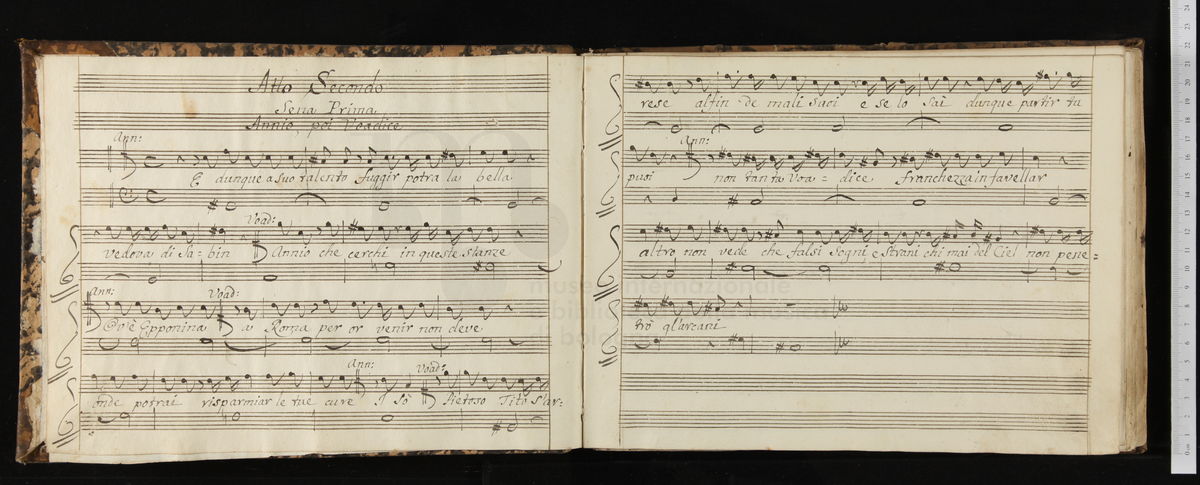 Atto Secondo
Sena Prima
Annio, poi Voadice
Ann:
E dunque a suo talento fuggir potrà la bella
Voad:
vedova di Sa = bin Annio che cerchi in queste stanze
Ann: Voad:
Ov'è Epponina a Roma per or venir non deve
Ann: Voad:
onde potrai risparmiar le tue cure I sò Pietoso Tito s'ar:
rese alfin de mali suoi e se lo sai dunque partir tu
Ann:
puoi non tanta Voa = dice franchezza in favellar
altro non vede che falsi sogni e strani chi mai del Ciel non pene =
trò gl'arcani
museo internazionale
e biblioteca della musica
di bologna